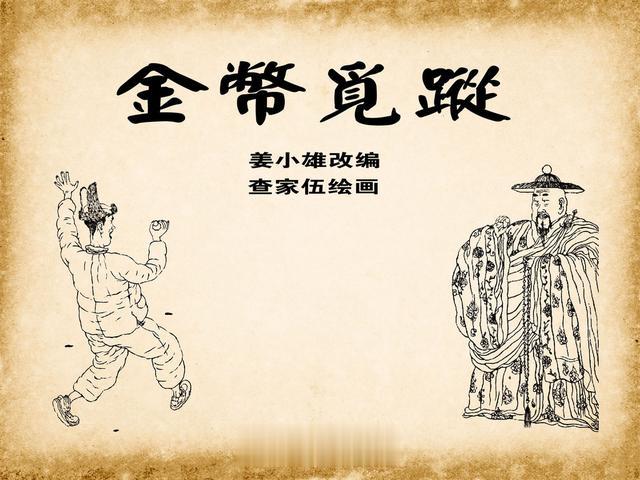 金幣覓蹤
姜小雄改编
查家伍绘画